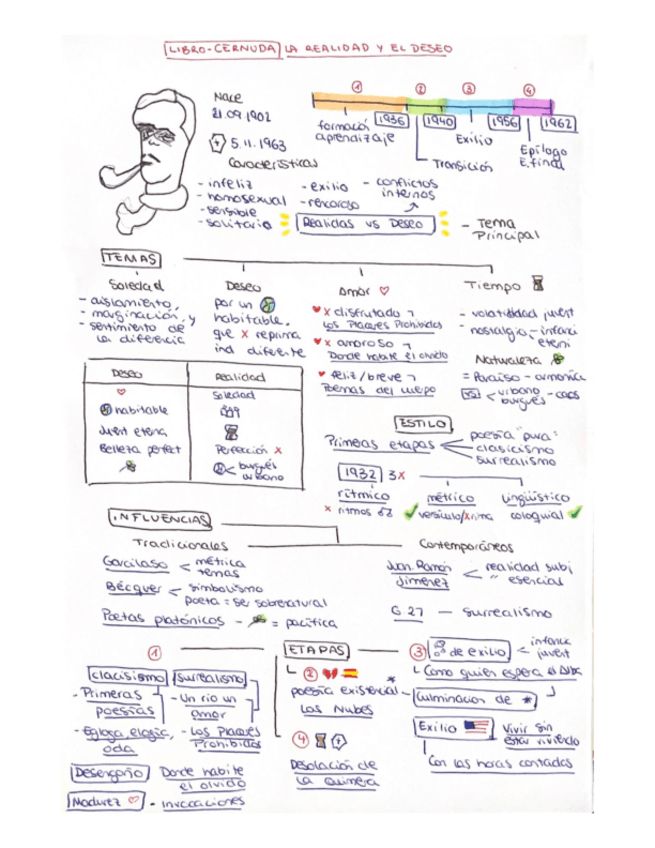 LIBRO-CERNUDA LA REALIDAD Y EL DESEO
Nace
21.09.1902
5.11.1963
Características
- infeliz
- homosexual
- sensible
- solitario
- exilio
- rencoroso
- conflictos internos
Realidas vs Deseo
- Tema Principal
① ② ③ ④
1936 1940 1956 1962
formació aprendizaje
Transición
Exilio
Epílogo E.final
TEMAS
Soledad
- aislamiento,
- marginación, y
- sentimiento de
la diferencia
Deseo
por un
habitable,
que x reprima
ind diferente
Amor
x disfrutado
Los Placeres Prohibidos
x amoroso
Donde habite el olvido
feliz/breve
Poemas del cuerpo
Tiempo
- volatilidad juvent
- nostalgia - infanci
eterni
Naturaleza
= Paraíso - armonica
VS urbano - caos
burgués
Deseo Realidad
Soledad
habitable
Juvent eterna
Belleza perfect Perfección x
burgués
urbano
ESTILO
Primeras etapas
poesía "pura"
clasicismo
surrealismo
1932 3x
rítmico métrico lingüístico
x ritmos versículo/xrima coloquial
INFLUENCIAS
Tradicionales
Garcilaso
métrica
temas
Bécquer
simbolismo
poeta = ser sobrenatural
Poetas platónicos - = pacífica
Contemporáneos
Juan Ramón
Jimenez
realidad subj
" esencial
G 27 — surrealismo
ETAPAS
①
clacisismo surrealismo
- Primeras
poesías
- Egloga, elegia,
oda
- Un río un
amor
- Los Placeres
Prohibidos
Desengaño Donde habite
el olvido
Madurez - Invocaciones
②
poesía existencial *
Las Nubes
④
Desolación de
la Quimera
③
de exilio
infancia
juvent
Como quien espera el Alba
Culminación de *
Exilio Vivir sin
estar viviendo
Con las horas contadas